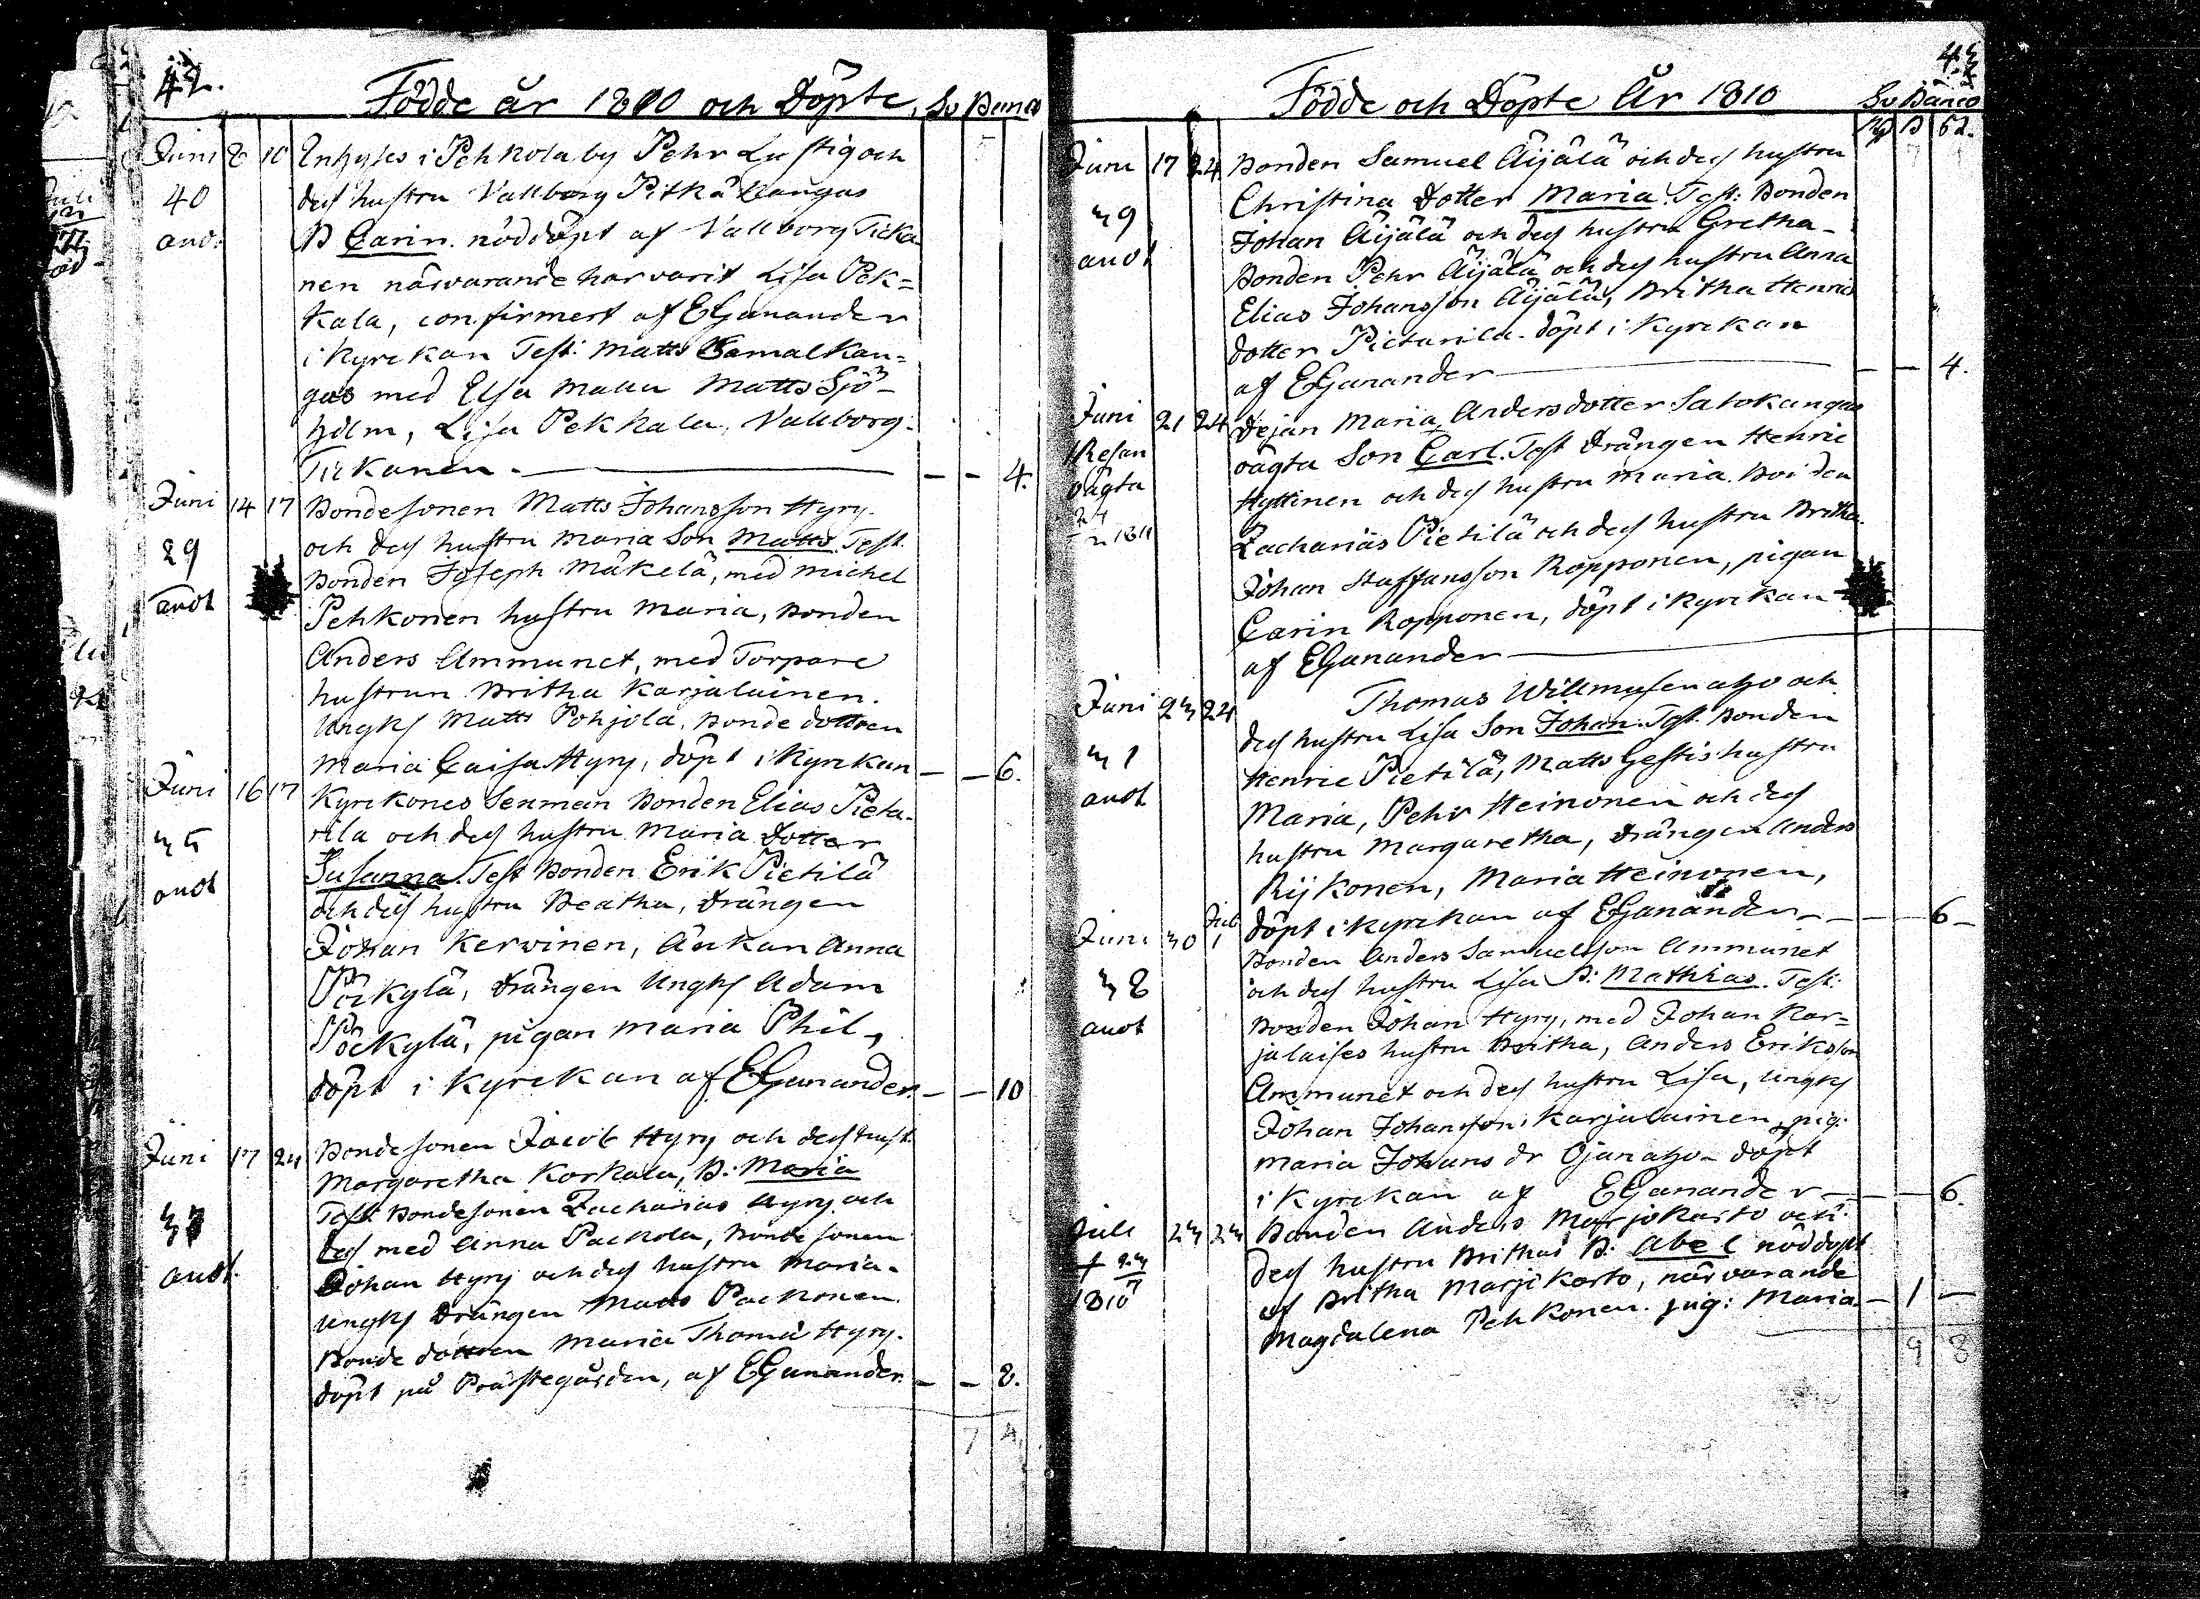 42.
Födde år 1810 och Döpte, Sv Banco
Juni 8 10 Inhyses i Pehkola by Pehr Lustig och
40 dess hustru Vallborg Pitkäkangas
and. B Carin. nöddöpt af Vallborg Ticka
nen närvarande har varit Lisa Pek=
kala, confirmert af EGanander
i Kyrckan Test: Matts Kamalkan=
gas med Elsa Malm Matts Sjö-
holm, Lisa Pekkala, Vallborg
Tickanen. — — 4.
Juni 14 17 Bondesonen Matts Johansson Hyry
och dess hustru Maria Son Matts. Test.
29 Bonden Joseph Mäkelä, med Michel
andt Pehkonen hustru Maria, Bonden
Anders Ammunet, med Torpare
hustrun Britha Karjalainen.
Ungks Matts Pohjola, Bonde dottren
Maria Caisa Hyry, döpt i Kyrckan — — 6.
Juni 16 17 Kyrckones Sexman Bonden Elias Pieta-
35 rila och dess hustru Maria Dotter
andt Susanna. Test Bonden Erik Pietilä
och dess hustru Beatha, Drängen
Johan Kervinen, Änkan Anna
Pöckylä, Drängen Ungks Adam
Pöckylä, pigan Maria Phil,
döpt i Kyrckan af EGanander — — 10
Juni 17 24 Bondesonen Jacob Hyry och dess hust.
Margaretha Korkala, B: Maria
37 Test. Bondesonen Zacharias Hyry och
andt. dess med Anna Packola, Bonde sonen
Johan Hyry och dess hustru Maria.
Ungks Drängen Matts Packonen
Bonde dottren Maria Thomæ Hyry.
döpt på Prästegården, af EGanander. — — 8.
7
43
Födde och Döpte År 1810 Sv Banco
Juni 17 24 Bonden Samuel Äijälä och dess hustru
39 Christina Dotter Maria. Test: Bonden
andt Johan Äijälä och dess hustru Gretha-
Bonden Pehr Äijälä och dess hustru Anna
Elias Johansson Äijälä, Britha Henric
dotter Pietarila. döpt i Kyrckan
af EGanander — — 4.
Juni 21 24 Pejan Maria Andersdotter Salokangas
oägta Son Carl. Test Drängen Henric
oägta Hyttinen och dess hustru Maria. Bonden
Zacharias Pietilä och dess hustru Britha.
Johan Staffansson Ropponen, pigan
Carin Ropponen, döpt i Kyrckan
af EGanander
Juni 23 24 Thomas Willmusenaho och
31 dess hustru Lisa Son Johan. Test. Bonden
andt Henric Pietilä, Matts Gestis hustru
Maria, Pehr Heinonen och dess
hustru Margaretha, Drängen Anders
Rijkonen, Maria Heinonen,
döpt i Kyrckan af EGanander — — 6 -
Juni 30 Juli 1 Bonden Anders Samuelsson Ammunet
38 och dess hustru Lisa B: Mathias. Test:
andt Bonden Johan Hyry, med Johan Kar=
jalaises hustru Britha, Anders Eriksson
Ammunet och dess hustru Lisa, Ungks
Johan Johansson Karjalainen, pig:
Maria Johans dr Ojanaho - döpt
i Kyrckan af EGanander — — 6.
Juli 23 23 Bonden Anders Marjokarto och
dess hustru Brithas B: Abel nöddöpt
1810 af Britha Marjokarto, närvarande
Magdalena Pehkonen. pig: Maria. — 1 —
9 8